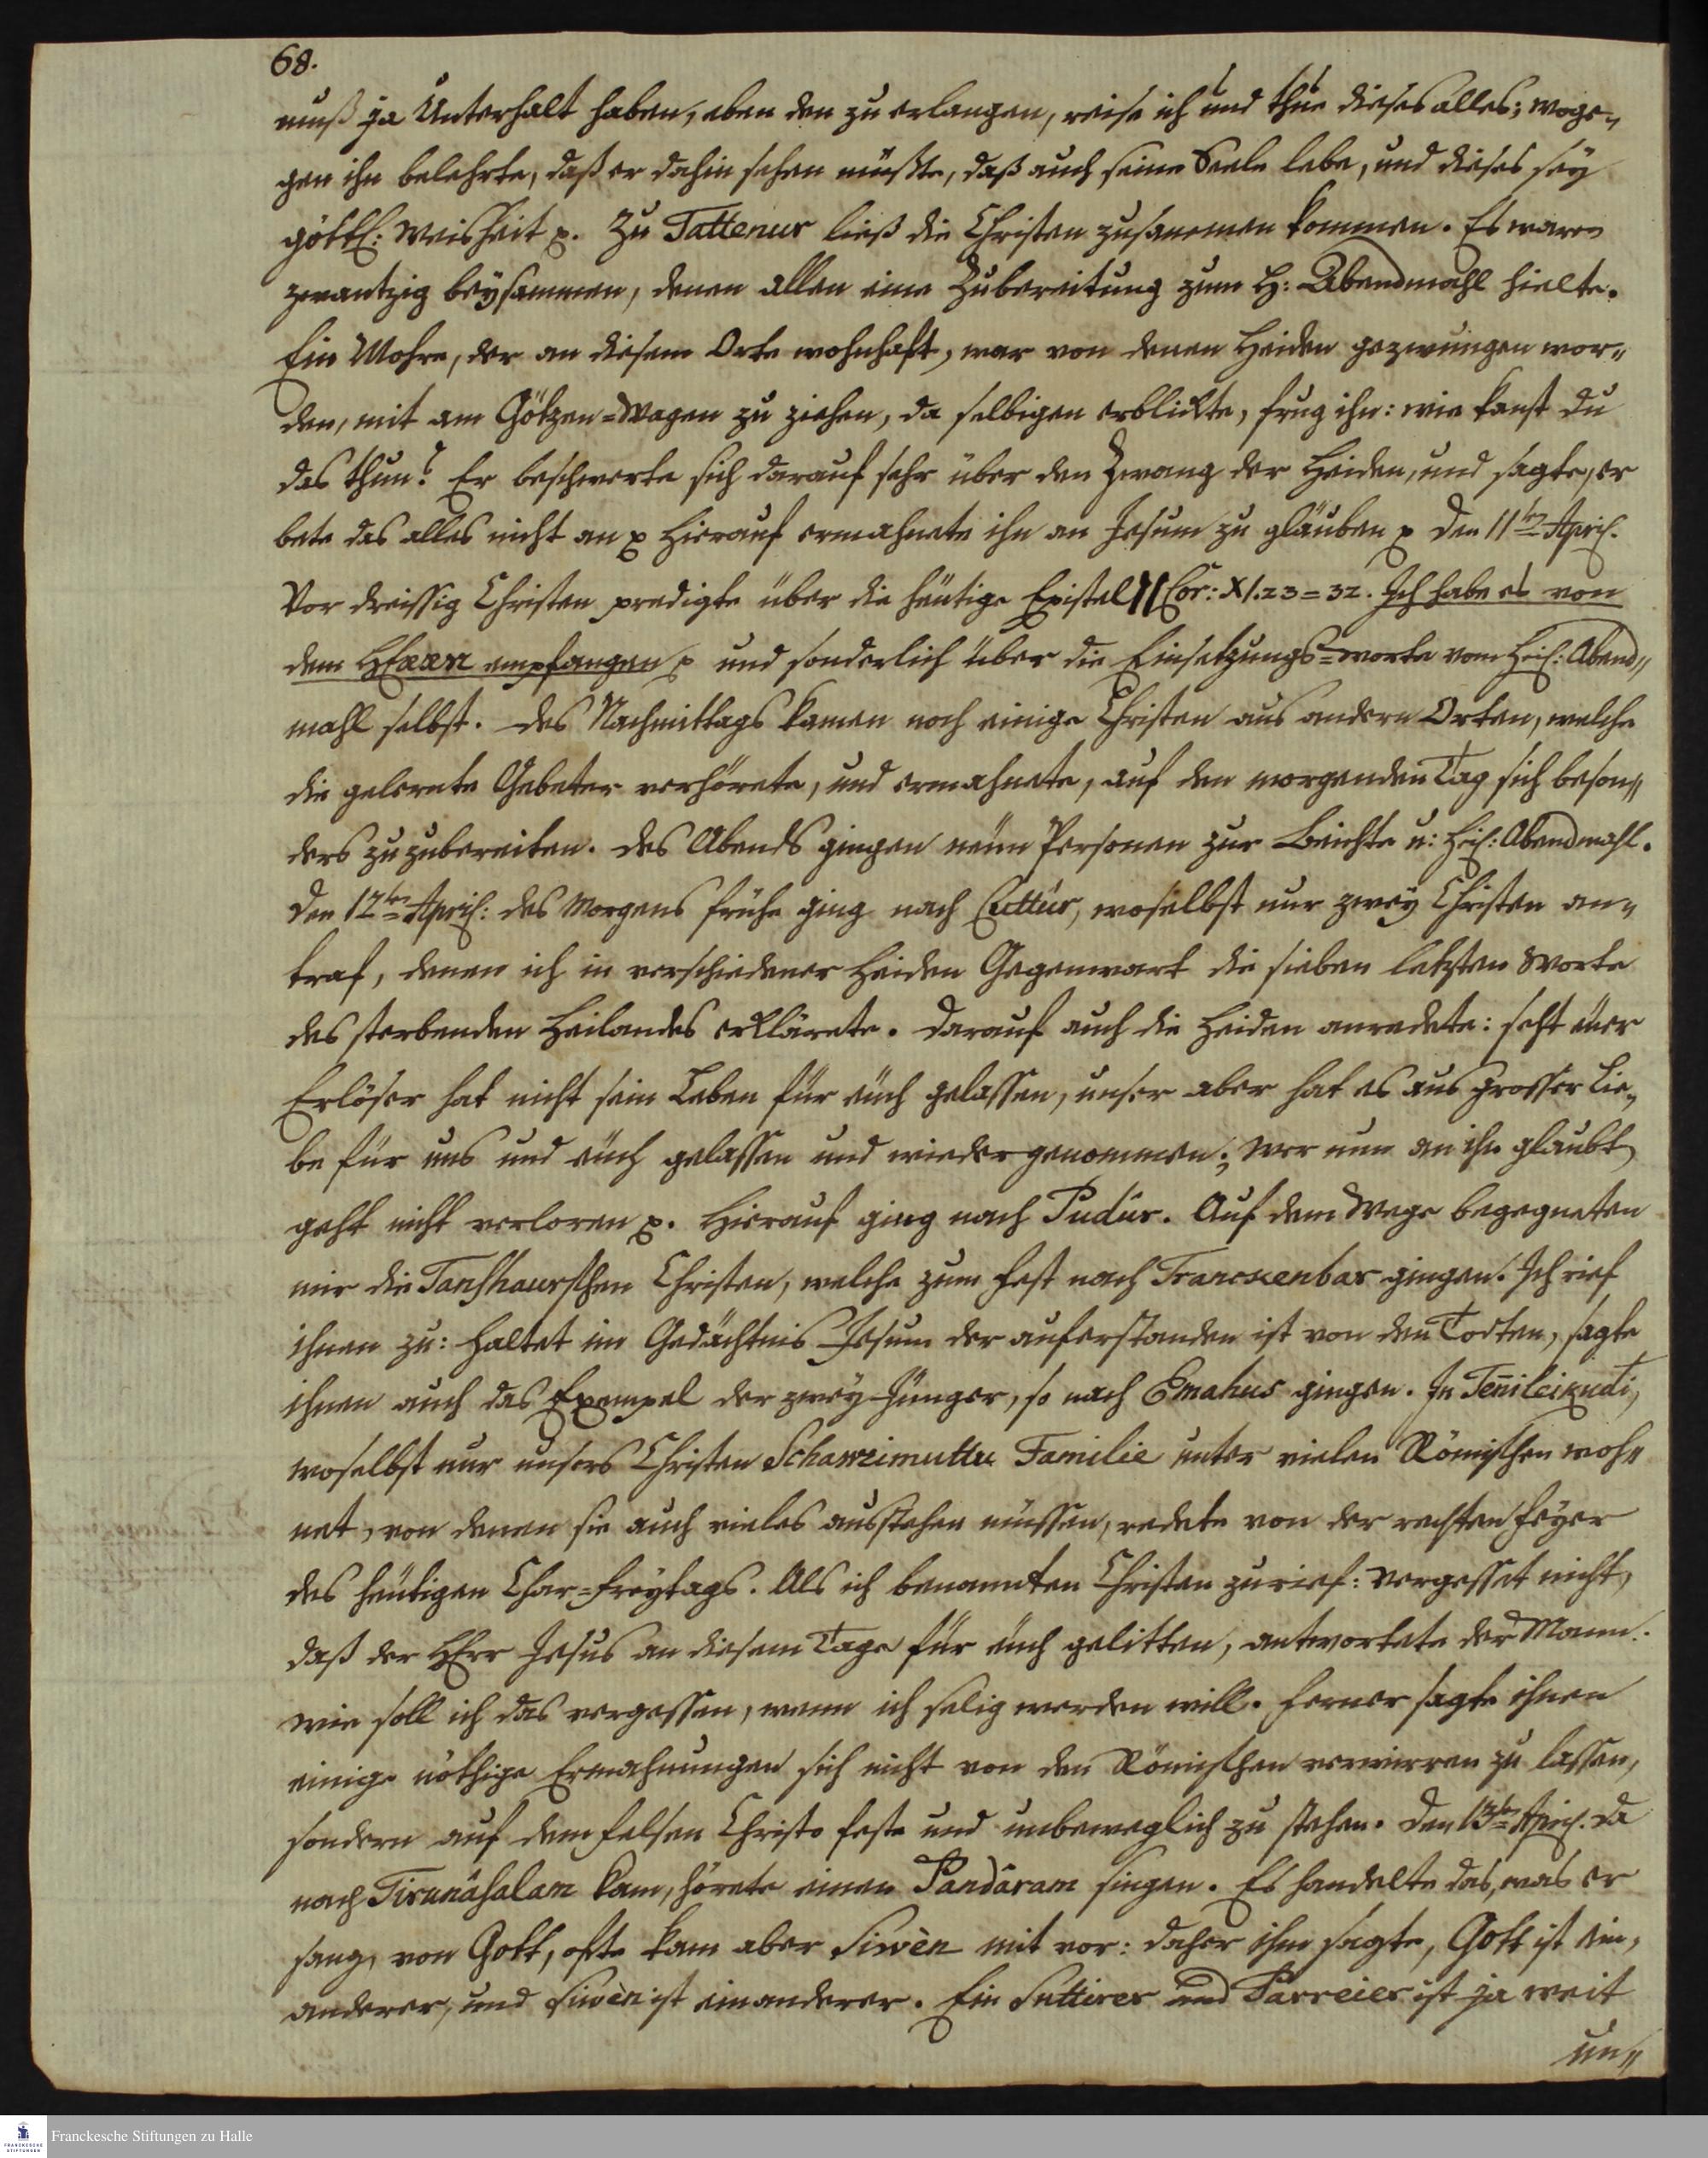 68.
muß ja Unterhalt haben, eben den zu erlangen, reise ich und thue dieses alles; woge-
gen ihn belehrte, daß er dahin sehen müßte, daß auch seine Seele lebe, und dieses sey
göttl: Weisheit p. Zu Tattenur ließ die Christen zusammen kommen. Es waren
zwantzig beysammen, denen allen eine Zubereitung zum H: Abendmahl hielte.
Ein Mohre, der an diesem Orte wohnhaft, war von denen Heiden gezwungen wor-
den, mit am Götzen-Wagen zu ziehen, da selbigen erblickte, frug ihn: wie kanst du
das thun? Er beschwerte sich darauf sehr über den Zwang der Heiden, und sagte, er
bete das alles nicht an p Hierauf ermahnete ihn an Jesum zu gläuben p Den 11ten April.
Vor dreissig Christen predigte über die heutige Epistel Cor: XI.23=32. Ich habe es von
dem HErrn empfangen p und sonderlich über die Einsetzungs-worte vom Heil: Abend-
mahl selbst. Des Nachmittags kamen noch einige Christen aus andern Orten, welche
die gelernte Gebeter verhörete, und ermahnete, auf den morgenden Tag sich beson-
ders zuzubereiten. Des Abends gingen neun Personen zur Beichte u: Heil: Abendmahl.
Den 12ten April: des Morgens frühe ging nach Cuttúr, woselbst nur zwey Christen an-
traf, denen ich in verschiedener Heiden Gegenwart die sieben letzten Worte
des sterbenden Heilandes erklärete. Darauf auch die Heiden anredete: seht euer
Erlöser hat nicht sein Leben für euch gelassen, unser aber hat es aus grosser Lie-
be für uns und euch gelassen und wieder genommen; wer nun an ihn glaubt,
geht nicht verloren p. Hierauf ging nach Pudúr. Auf dem Wege begegneten
mir die Tanshaurschen Christen, welche zum Fest nach Tranckenbar gingen. Ich rief
ihnen zu: Haltet im Gedächtnis Jesum der auferstanden ist von den Todten, sagte
ihnen auch das Exempel der zwey Jünger, so nach Emahus gingen. In Teñileikudi,
woselbst nur unsers Christen Schawrimuttu Familie unter vielen Römischen woh-
net, von denen sie auch vieles ausstehen müssen, redete von der rechten Feyer
des heutigen Char-Freytags. Als ich benannten Christen zurief: vergesset nicht,
daß der HErr Jesus an diesem Tage für euch gelitten, antwortete der Mann:
wie soll ich das vergessen, wenn ich selig werden will. Ferner sagte ihnen
einige nöthige Ermahnungen sich nicht von den Römischen verwirren zu lassen,
sondern auf dem Felsen Christo feste und unbeweglich zu stehen. Den 13ten April. da
nach Tirunâhalam kam, hörete einen Pandâram singen. Es handelte das, was er
sang, von Gott, ofte kam aber Siwèn mit vor: daher ihm sagte, Gott ist ein,
anderer, und Siwèn ist ein anderer. Ein Suttirer und Parreier ist ja weit
un-
Franckesche Stiftungen zu Halle